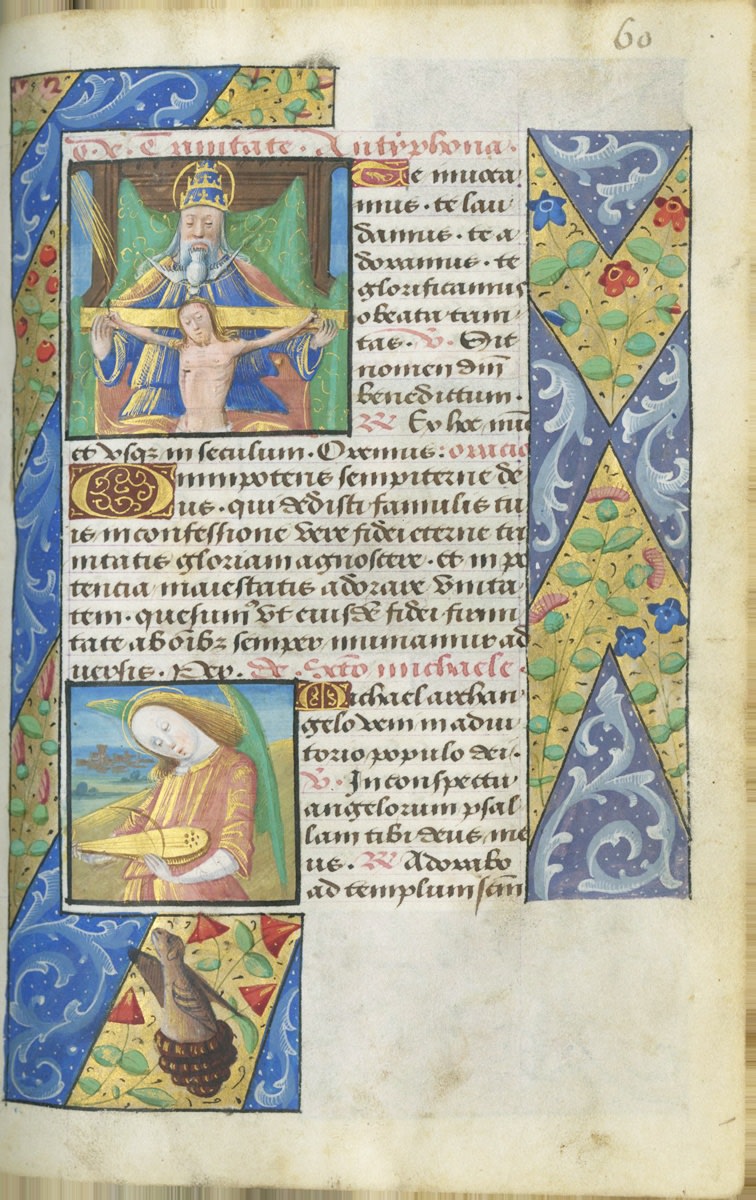 60
De Trinitate. Antyphona.
Te invoca
mus. te lau
damus. te a
doramus. te
glorificamus
o beata trini
tas. V. Sit
nomen dn̄i
benedictum.
R Ex hoc nūc
et usq; in seculum. Oremus: oracio
Omnipotens sempiterne de
us. qui dedisti famulis tu
is in confessione vere fidei eterne tri
nitatis gloriam agnoscere. et in po
tencia maiestatis adorare vnita
tem. quesum⁹ vt eiusdē fidei firmi
tate ab oībz semper muniamur ad
uersis. Per. de Scto michaele.
Michael archan
gelo veni in adiu
torio populo dei.
V. In conspectu
angelorum psal
lam tibi deus me
us. R Adorabo
ad templum scm̄